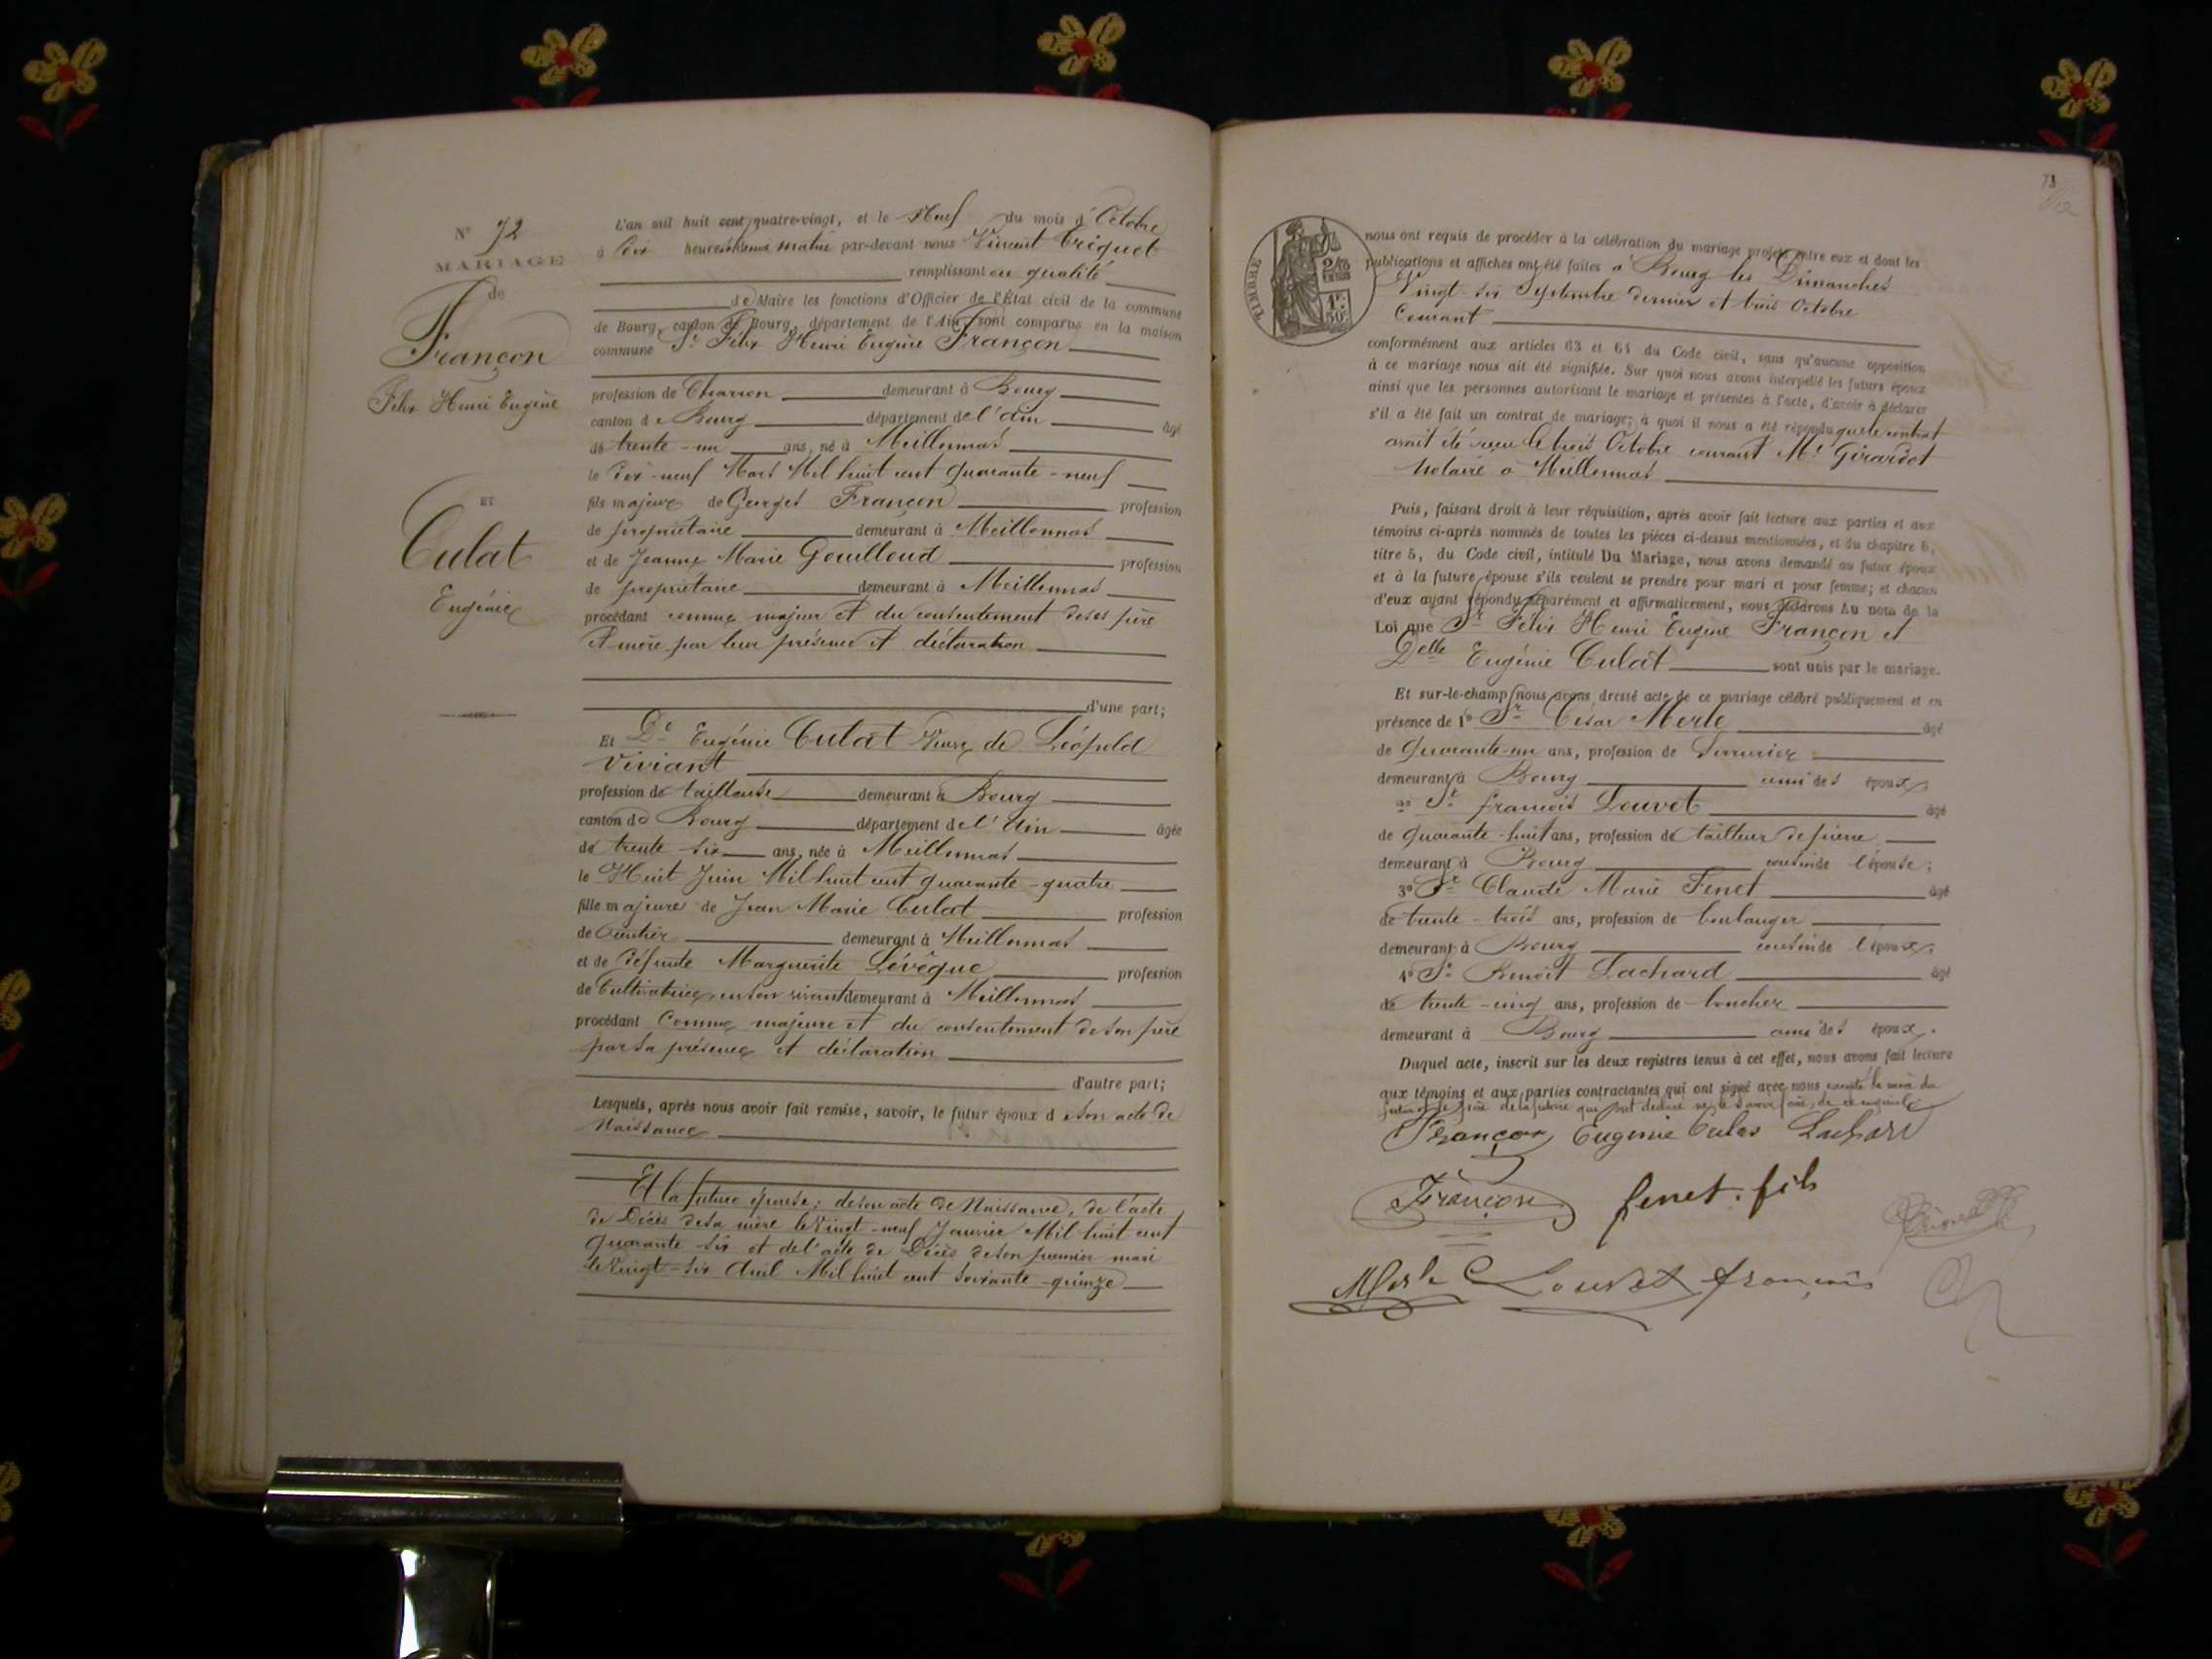 N° 72
MARIAGE
de
Françon
Felix Henri Eugène
ET
Culat
Eugénie
L'an mil huit cent quatre-vingt, et le Neuf du mois d'Octobre
à dix heures du matin par-devant nous Vincent Criquet
remplissant en qualité
de Maire les fonctions d'Officier de l'État civil de la commune
de Bourg, canton de Bourg, département de l'Ain, sont comparus en la maison
commune Sr Felix Henri Eugène Françon
profession de Charron demeurant à Bourg
canton de Bourg département de l'Ain âgé
de trente-un ans, né à Meillonnas
le dix-neuf Mars Mil huit cent quarante-neuf
fils majeur de Georges Françon profession
de propriétaire demeurant à Meillonnas
et de Jeanne Marie Gouilloud profession
de propriétaire demeurant à Meillonnas
procédant comme majeur et du consentement de ses père
et mère par leur présence et déclaration
d'une part;
Et De Eugénie Culat Veuve de Léopold
Viviant
profession de tailleuse demeurant à Bourg
canton de Bourg département de l'Ain âgée
de trente six ans, née à Meillonnas
le Huit Juin Mil huit cent quarante-quatre
fille majeure de Jean Marie Culat profession
de Rentier demeurant à Meillonnas
et de défunte Marguerite Lévêque profession
de Cultivatrice, en son vivant demeurant à Meillonnas
procédant comme majeure et du consentement de son père
par sa présence et déclaration
d'autre part;
Lesquels, après nous avoir fait remise, savoir, le futur époux de son acte de
Naissance
Et la future épouse: de son acte de Naissance, de l'acte
de Décès de sa mère le vingt-neuf Janvier Mil huit cent
quarante-six et de l'acte de Décès de son premier mari
le vingt-six Avril Mil huit cent soixante-quinze
TIMBRE
nous ont requis de procéder à la célébration du mariage projeté entre eux et dont les
publications et affiches ont été faites à Bourg les Dimanches
Vingt-six Septembre dernier et trois Octobre
Courant
conformément aux articles 63 et 64 du Code civil, sans qu'aucune opposition
à ce mariage nous ait été signifiée. Sur quoi nous avons interpellé les futurs époux
ainsi que les personnes autorisant le mariage et présentes à l'acte, d'avoir à déclarer
s'il a été fait un contrat de mariage; à quoi il nous a été répondu que le contrat
avait été reçu le trois Octobre courant Me Girardot
Notaire à Meillonnas
Puis, faisant droit à leur réquisition, après avoir fait lecture aux parties et aux
témoins ci-après nommés de toutes les pièces ci-dessus mentionnées, et du chapitre 6,
titre 5, du Code civil, intitulé Du Mariage, nous avons demandé au futur époux
et à la future épouse s'ils veulent se prendre pour mari et pour femme; et chacun
d'eux ayant répondu séparément et affirmativement, nous déclarons Au nom de la
Loi que Sr Felix Henri Eugène Françon et
Delle Eugénie Culat sont unis par le mariage.
Et sur-le-champ nous avons dressé acte de ce mariage célébré publiquement et en
présence de 1° Sr César Merle âgé
de quarante-un ans, profession de Serrurier
demeurant à Bourg ami des époux;
2° Sr françois Louvet âgé
de quarante-huit ans, profession de tailleur de pierre
demeurant à Bourg cousin de l'épouse;
3° Sr Claude Marie Fenet âgé
de trente-trois ans, profession de boulanger
demeurant à Bourg cousin de l'époux;
4° Sr Benoit Lachard âgé
de trente-cinq ans, profession de boucher
demeurant à Bourg ami des époux.
Duquel acte, inscrit sur les deux registres tenus à cet effet, nous avons fait lecture
aux témoins et aux parties contractantes qui ont signé avec nous excepté la mère du
futur et le père de la future qui ont déclaré ne le savoir faire, de ce enquis
Françon Eugenie Culat Lachard
Françon fenet. fils
Merle C Louvet françois